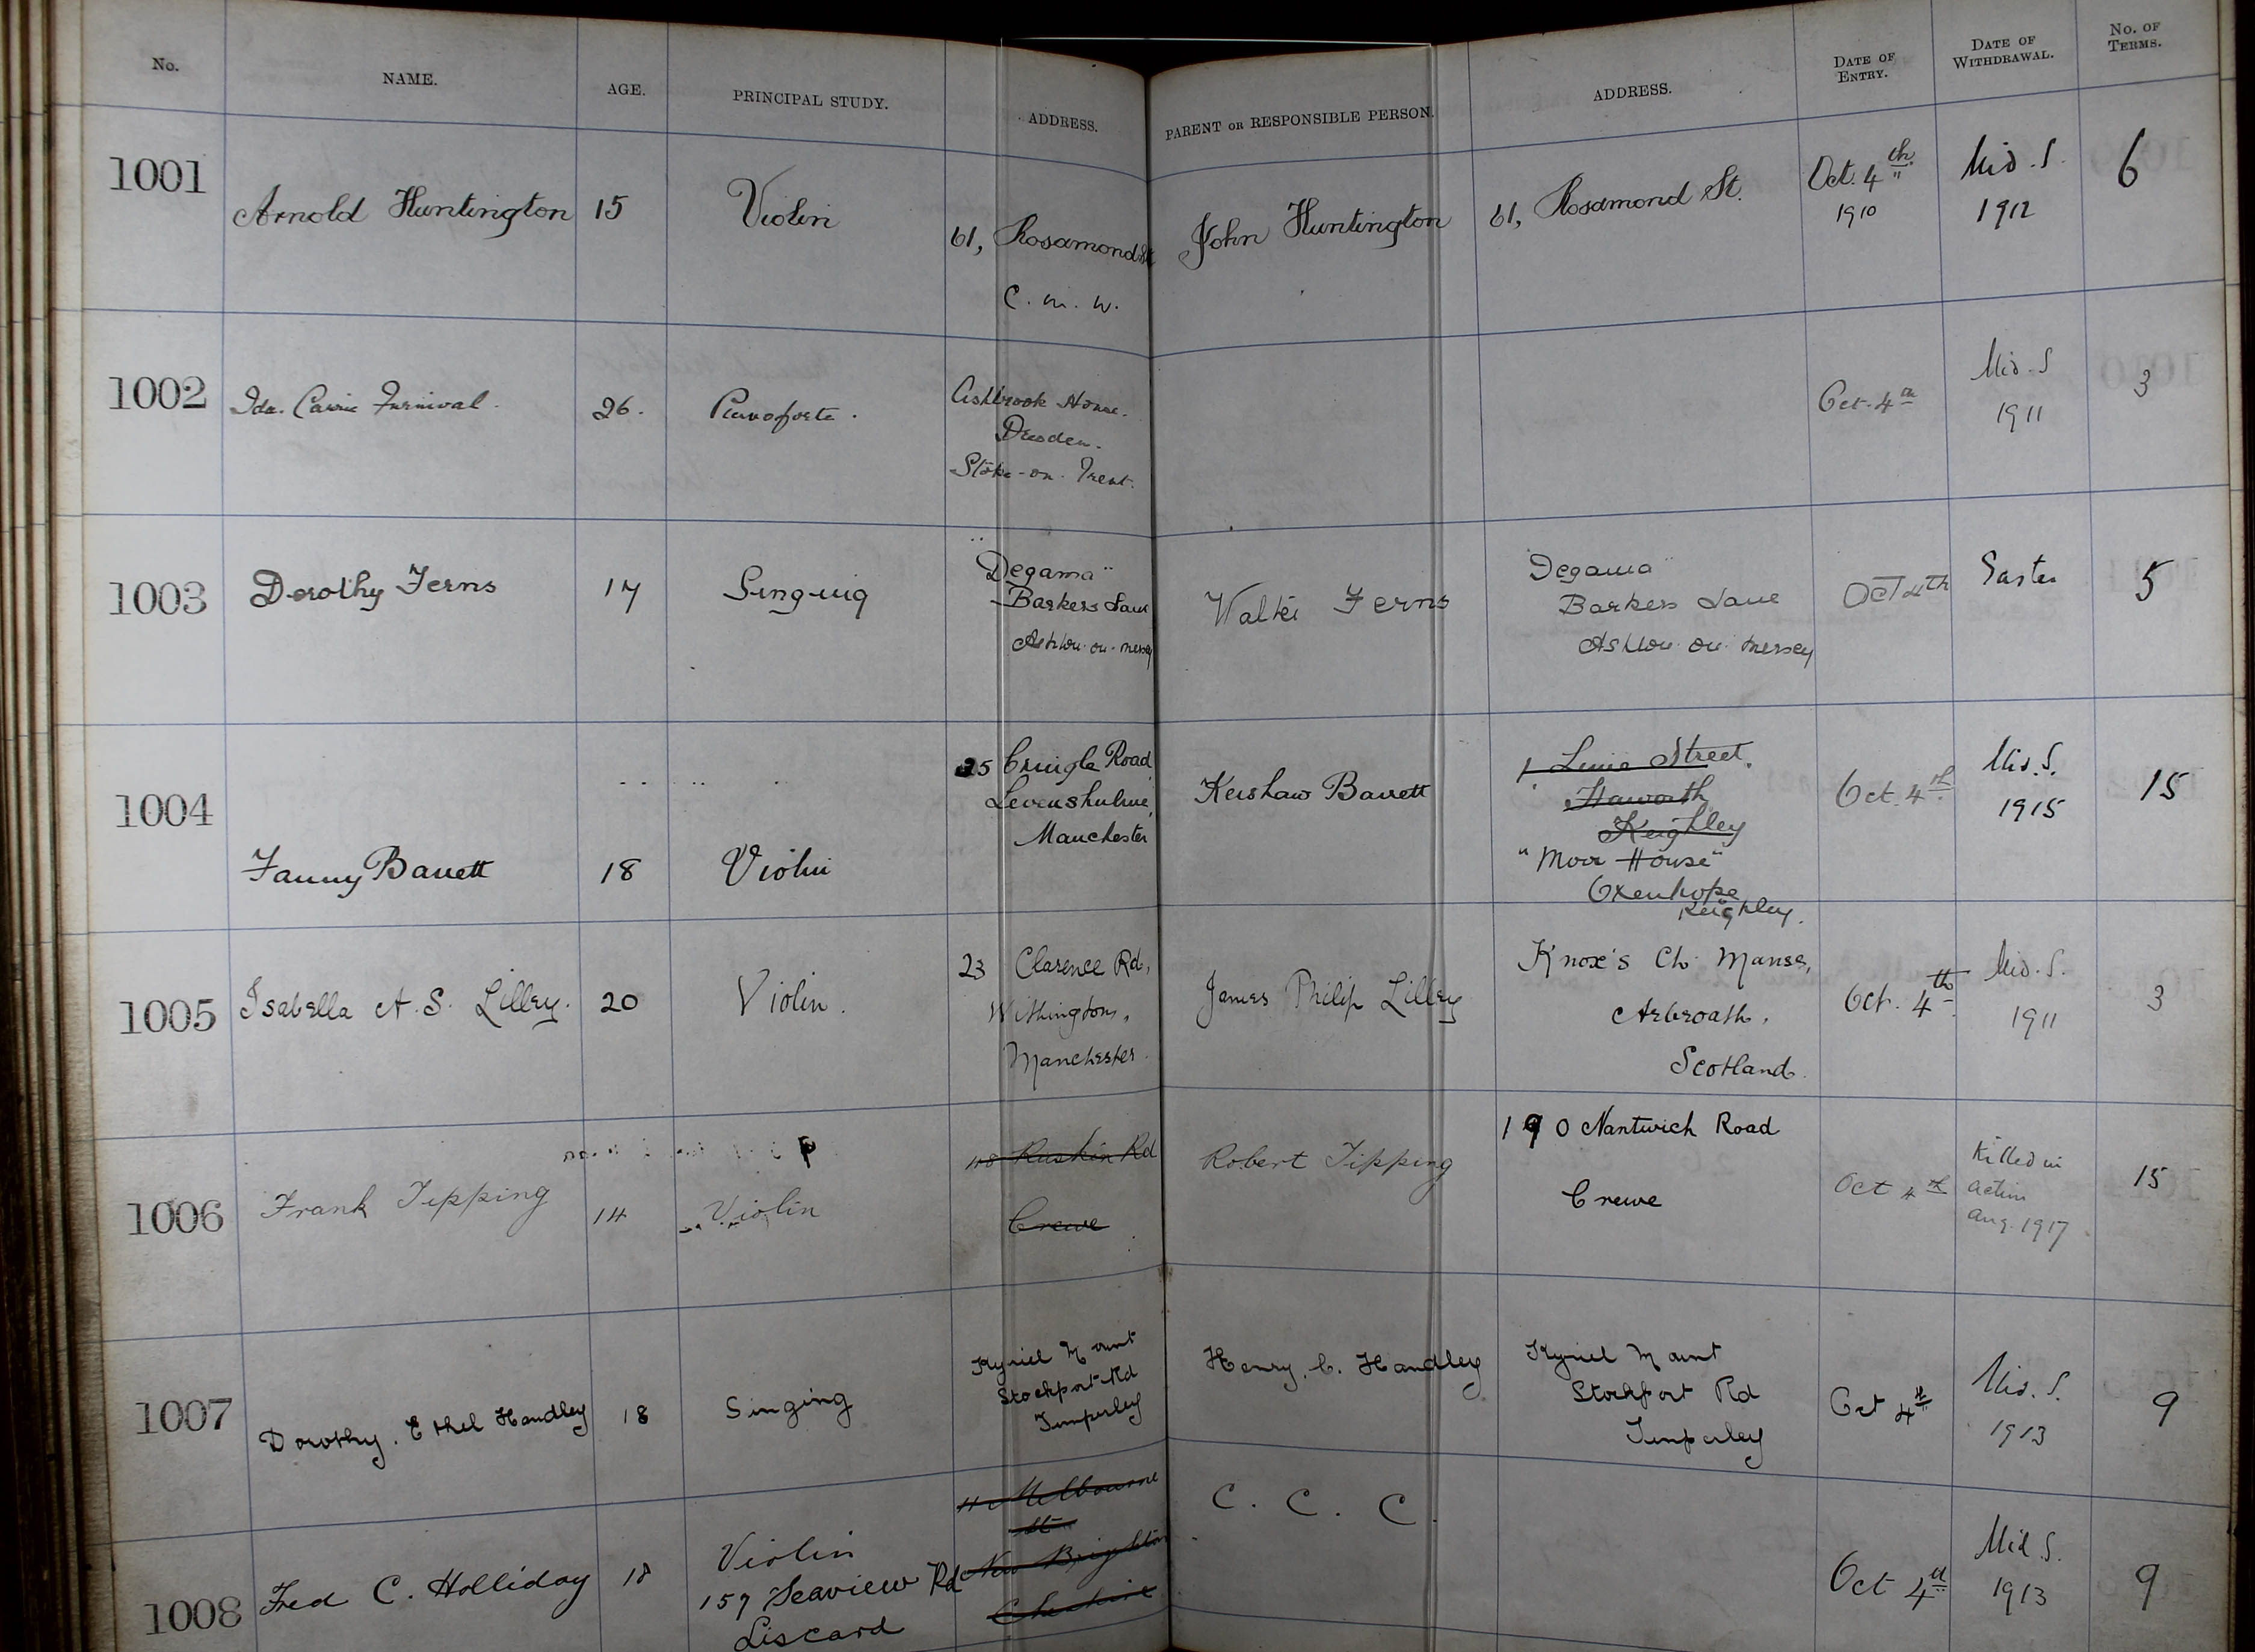 No. NAME. AGE. PRINCIPAL STUDY. ADDRESS. PARENT OR RESPONSIBLE PERSON. ADDRESS. DATE OF ENTRY. DATE OF WITHDRAWAL. No. OF TERMS.
1001 Arnold Huntington 15 Violin 61, Rosamond St John Huntington 61, Rosamond St. Oct. 4th 1910 Mid. S. 1912 6
C. m. W.
1002 Ida. Carrie Furnival. 26. Pianoforte. Ashbrook House. Oct. 4th Mid. S 1911 3
Dresden.
Stoke-on-Trent.
1003 Dorothy Ferns 17 Singing "Degama" Walter Ferns "Degama" Oct 4th Easter 5
Barkers Lane Barkers Lane
Ashton-on-Mersey Ashton on Mersey
1004 Fanny Barrett 18 Violin 25 Cringle Road Kershaw Barrett 1 Lime Street, Oct. 4th Mid. S. 1915 15
Levenshulme, Haworth
Manchester Keighley
"Moor House"
Oxenhope
Keighley.
1005 Isabella A. S. Lilley. 20 Violin. 23 Clarence Rd, James Philip Lilley Knox's Ch. Manse, Oct. 4th Mid. S. 1911 3
Withington, Arbroath,
Manchester. Scotland.
1006 Frank Tipping 14 Violin 118 Ruskin Rd Robert Tipping 190 Nantwich Road Oct 4th Killed in action Aug. 1917 15
Crewe Crewe
1007 Dorothy. Ethel Handley 18 Singing Mount Henry. C. Handley Mount Oct 4th Mid. S. 1913 9
Stockport Rd Stockport Rd
Timperley Timperley
1008 Fred C. Holliday 18 Violin Melbourne C. C. C. Oct 4th Mid S. 1913 9
St
159 Seaview Rd New Brighton
Liscard Cheshire